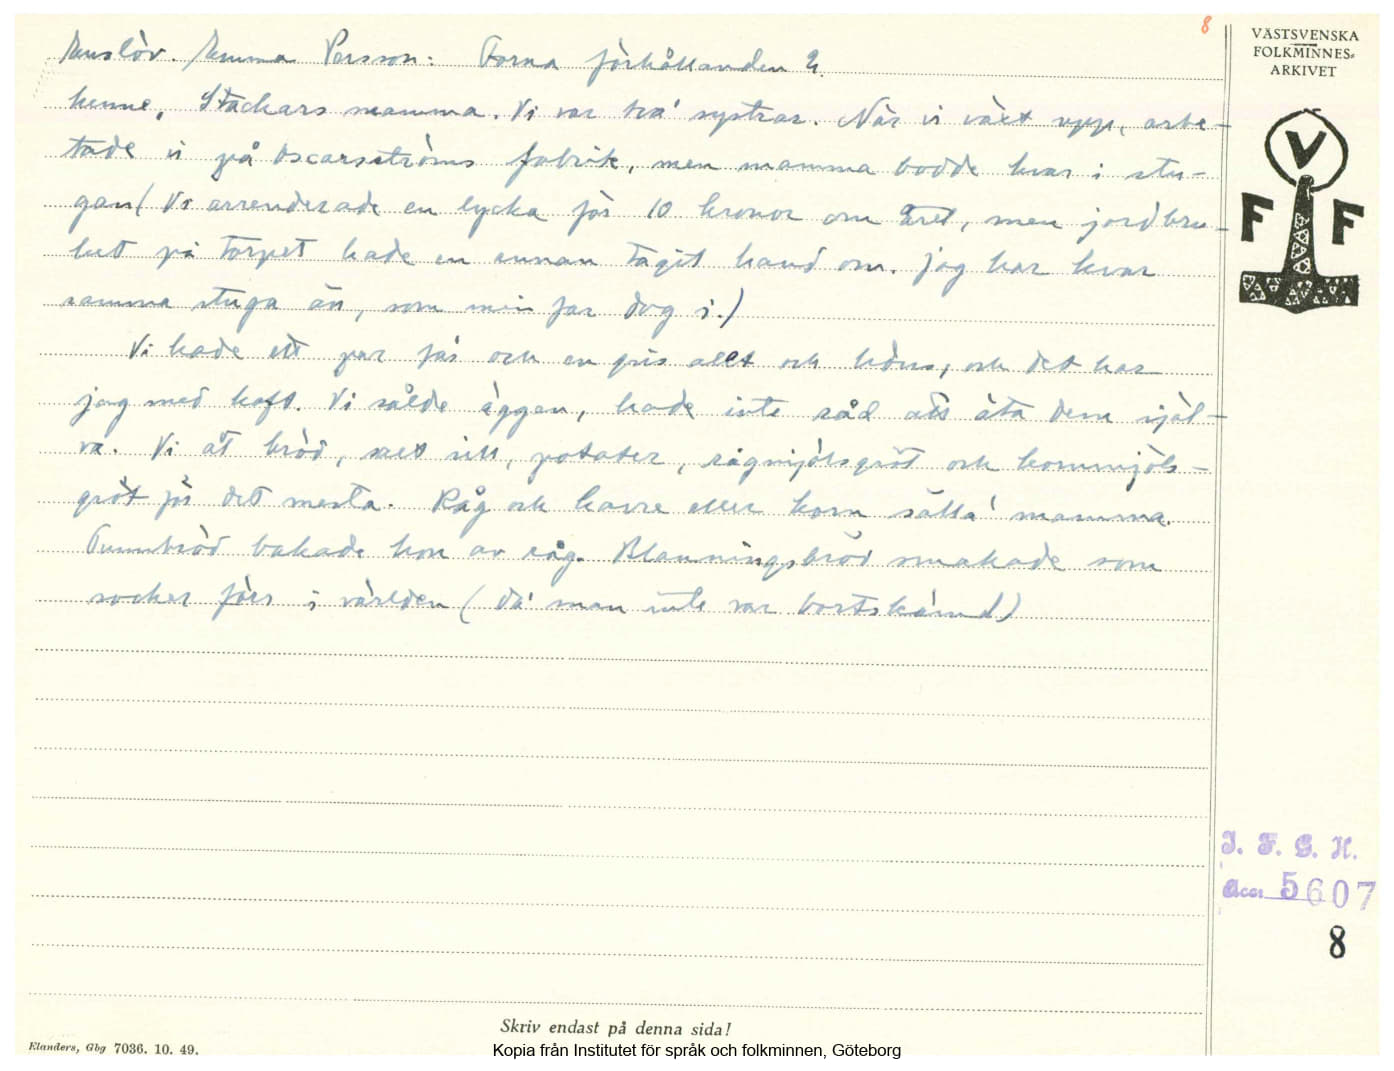 8
VÄSTSVENSKA
FOLKMINNES-
ARKIVET
Enslöv. Emma Persson: Forna förhållanden 4
henne. Stackars mamma. Vi var två systrar. När vi växt upp, arbe-
tade vi på Oscarsströms fabrik, men mamma bodde kvar i stu-
gan (Vi arrenderade en lycka för 10 kronor om året, men jordbru-
ket på torpet hade en annan tagit hand om. Jag har kvar
samma stuga än, som min far dog i.)
Vi hade ett par får och en gris allt och höns, och det har
jag med haft. Vi sålde äggen, hade inte råd att äta dem själ-
va. Vi åt bröd, salt sill, potater, rågmjölsgröt och kornmjöls-
gröt för det mesta. Råg och havre eller korn sådda' mamma.
Tunnbröd bakade hon av råg. Blanningsbröd smakade som
socker förr i världen (då man inte var bortskämd)
V
F F
I. F. G. H.
Acc. 5607
8
Skriv endast på denna sida!
Elanders, Gbg 7036. 10. 49.
Kopia från Institutet för språk och folkminnen, Göteborg